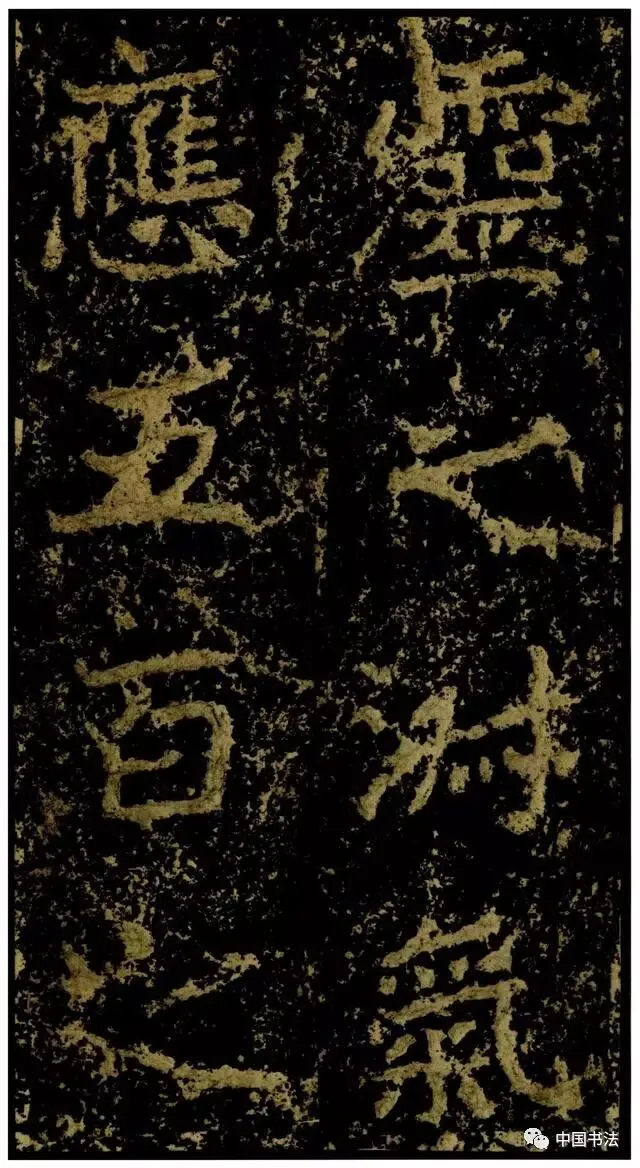 靈之氣
應五百之
中国书法